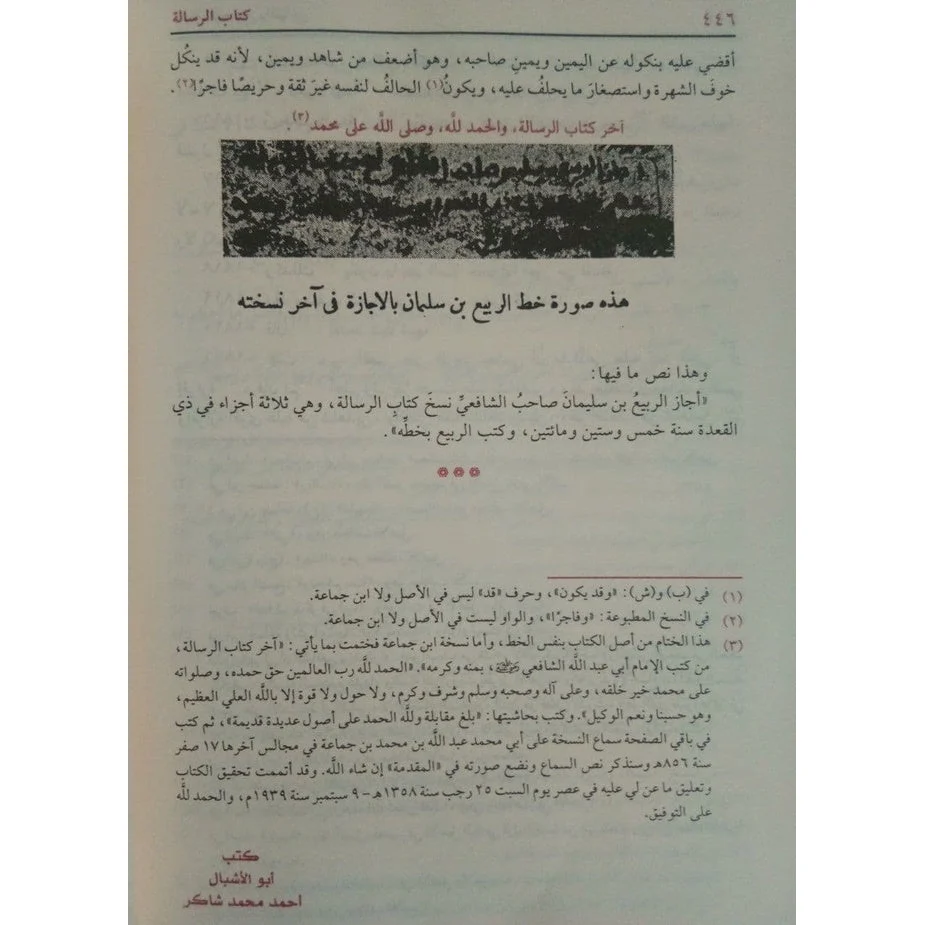 ٤٤٦
كتاب الرسالة
أقضي عليه بنكوله عن اليمين ويمينِ صاحبه، وهو أضعف من شاهد ويمين، لأنه قد ينكُل
خوفَ الشهرة واستصغارَ ما يحلفُ عليه، ويكونُ(١) الحالفُ لنفسه غيرَ ثقة وحريصًا فاجرًا(٢).
آخر كتاب الرسالة، والحمد للَّه، وصلى اللَّه على محمد(٣).
هذه صورة خط الربيع بن سليمان بالاجازة فى آخر نسخته
وهذا نص ما فيها:
«أجاز الربيعُ بن سليمانَ صاحبُ الشافعيِّ نسخَ كتابِ الرسالة، وهي ثلاثة أجزاء في ذي
القعدة سنة خمس وستين ومائتين، وكتب الربيع بخطِّه».
(١) في (ب) و(ش): «وقد يكون»، وحرف «قد» ليس في الأصل ولا ابن جماعة.
(٢) في النسخ المطبوعة: «وفاجرًا»، والواو ليست في الأصل ولا ابن جماعة.
(٣) هذا الختام من أصل الكتاب بنفس الخط، وأما نسخة ابن جماعة فختمت بما يأتي: «آخر كتاب الرسالة،
من كتب الإمام أبي عبد اللَّه الشافعي رضي الله عنه، بمنه وكرمه». «الحمد للَّه رب العالمين حق حمده، وصلواته
على محمد خير خلقه، وعلى آله وصحبه وسلم وشرف وكرم، ولا حول ولا قوة إلا باللَّه العلي العظيم،
وهو حسبنا ونعم الوكيل». وكتب بحاشيتها: «بلغ مقابلة وللَّه الحمد على أصول عديدة قديمة»، ثم كتب
في باقي الصفحة سماع النسخة على أبي محمد عبد اللَّه بن محمد بن جماعة في مجالس آخرها ١٧ صفر
سنة ٨٥٦هـ وسنذكر نص السماع ونضع صورته في «المقدمة» إن شاء اللَّه. وقد أتممت تحقيق الكتاب
وتعليق ما عن لي عليه في عصر يوم السبت ٢٥ رجب سنة ١٣٥٨هـ - ٩ سبتمبر سنة ١٩٣٩م، والحمد للَّه
على التوفيق.
كتب
أبو الأشبال
احمد محمد شاكر